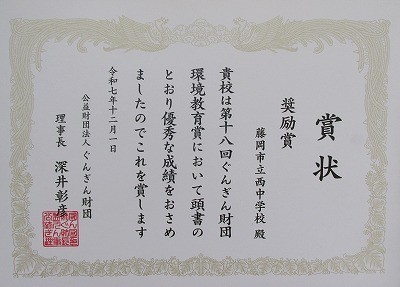 賞状
奨励賞
藤岡市立西中学校 殿
貴校は第十八回ぐんぎん財団
環境教育賞において頭書の
とおり優秀な成績をおさめ
ましたのでこれを賞します
令和七年十二月一日
公益財団法人 ぐんぎん財団
理事長 深井彰彦